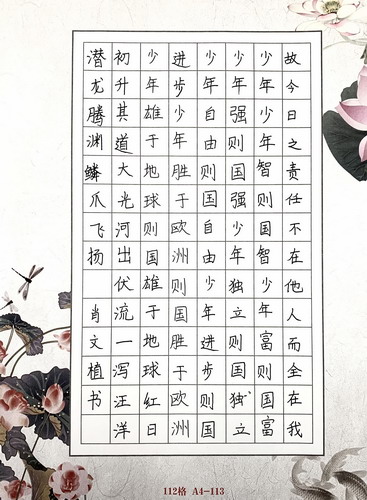 故今日之责任不在他人而全在我
少年少年智则国智少年富则国富
少年强则国强少年独立则国独立
少年自由则国自由少年进步则国
进步少年胜于欧洲则国胜于欧洲
少年雄于地球则国雄于地球红日
初升其道大光河出伏流一泻汪洋
潜龙腾渊鳞爪飞扬 肖文植书
112格 A4-113